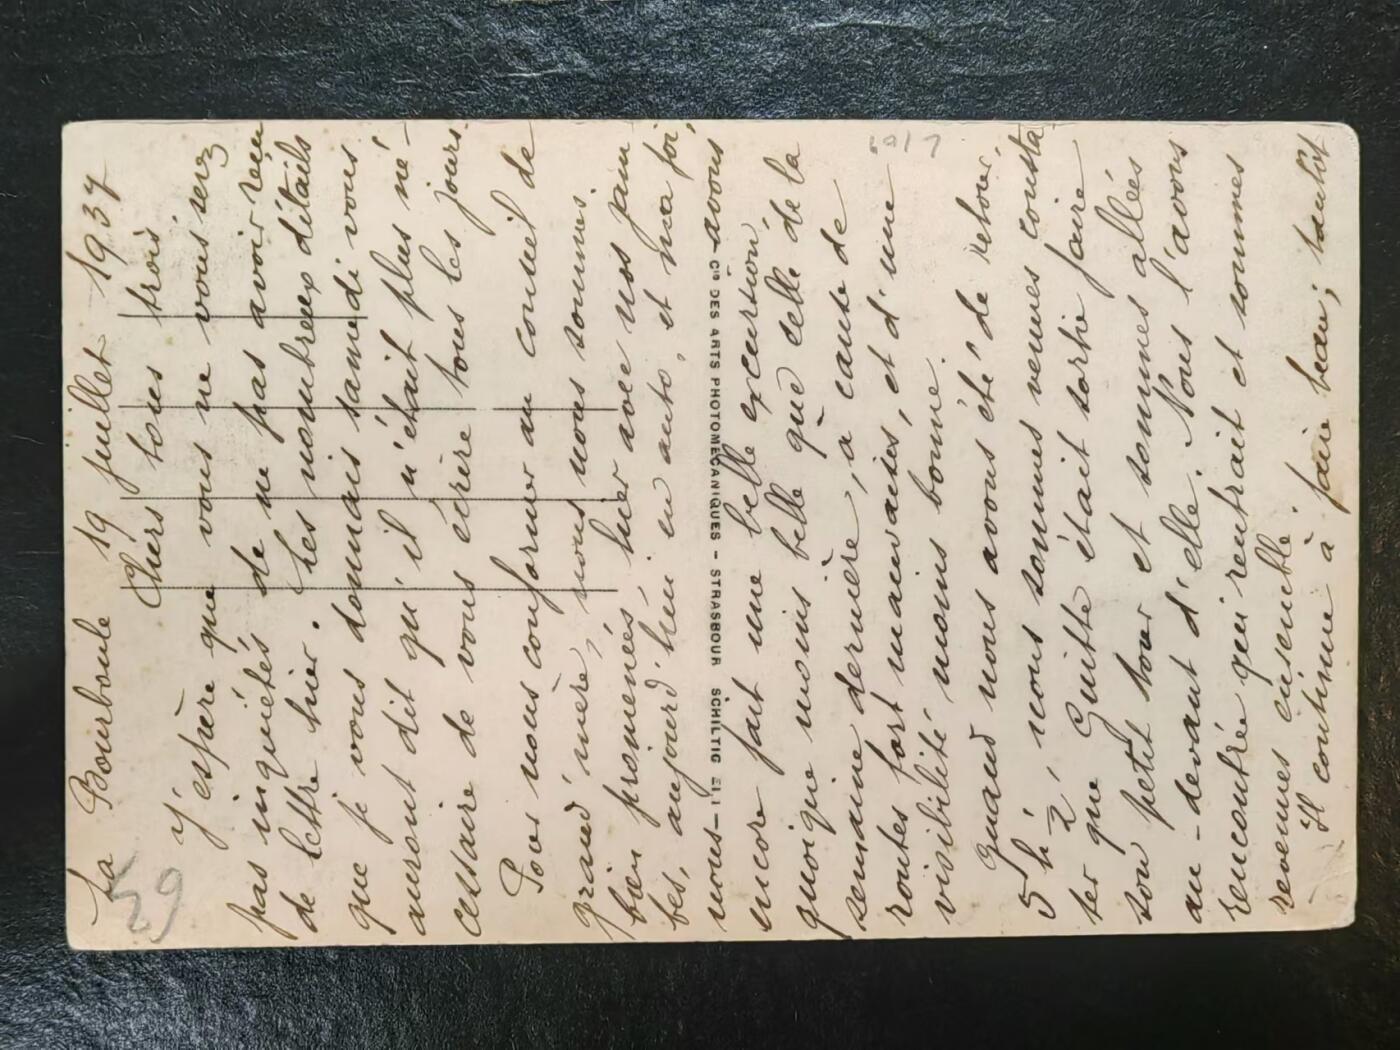 La Bourboule 19 juillet 1937
Chers tous trois
J'espère que vous ne vous serez
pas inquiétés de ne pas avoir reçu
de lettre hier. Les nombreux détails
que je vous donnais samedi vous
auront dit qu'il n'était plus né-
cessaire de vous écrire tous les jours.
Pour nous conformer au conseil de
grand'mère, nous nous sommes
bien promenés, hier avec nos jam
bes, aujourd'hui en auto, et ma foi,
nous avons
encore fait une belle excursion
quoique moins belle que celle de la
semaine dernière, à cause de
routes fort mauvaises, et d'une
visibilité moins bonne.
Quand nous avons été de retour,
5 h ½, nous sommes venues consta-
ter que Guitte était sortie faire
son petit tour et sommes allées
au-devant d'elle. Nous l'avons
rencontrée qui rentrait et sommes
revenues ensemble.
Il continue à faire beau; tantôt
Cie DES ARTS PHOTOMÉCANIQUES - STRASBOUR SCHILTIG
59